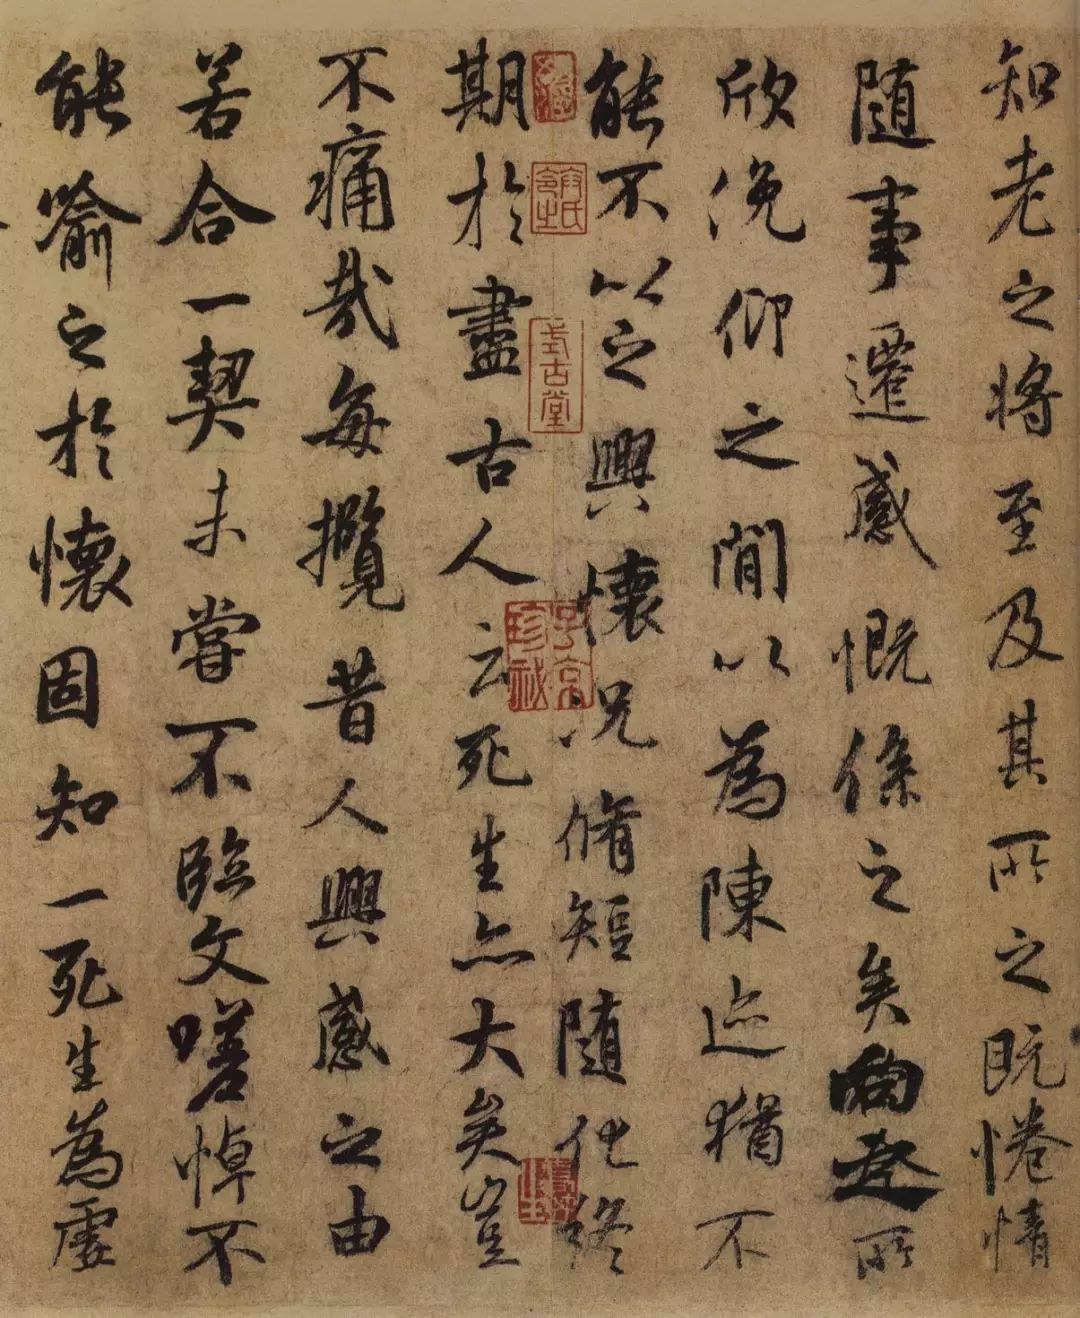 知老之將至及其所之既惓情
隨事遷感慨係之矣向之所
欣俛仰之閒以為陳迹猶不
能不以之興懷況脩短隨化終
期於盡古人云死生亦大矣豈
不痛哉每攬昔人興感之由
若合一契未嘗不臨文嗟悼不
能喻之於懷固知一死生為虛
式古堂
珍秘